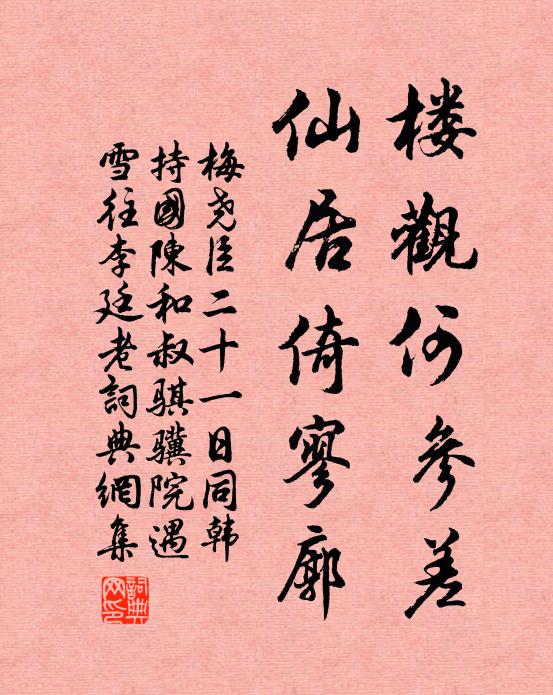 楼觀何參差
仙居倚寥廓
梅尧臣二十一日同韩
持國陳和叔骐骥院遇
雪往李廷老詞典網集
詞典网印